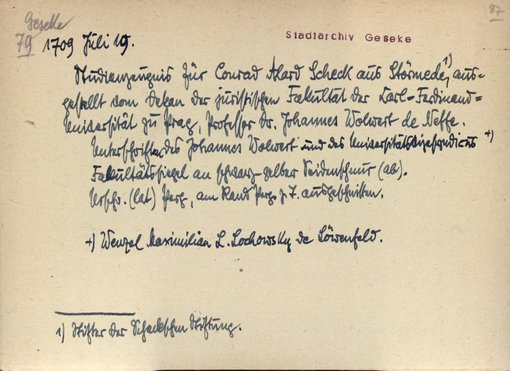 Geseke
79
87
1709 Juli 19.
Stadtarchiv Geseke
Studienzeugnis für Conrad Alard Scheck aus Störmede,¹) aus-
gestellt vom Dekan der juristischen Fakultät der Karl-Ferdinand-
Universität zu Prag, Professor Dr. Johannes Wolwert de Neffe.
Unterschriften des Johannes Wolwert und des Universitätsvizesyndicus +)
Fakultätssiegel an schwarz-gelber Seidenschnur (ab).
Urschr. (lat) Perg., am Rand ausgeschnitten.
+) Wenzel Maximilian L. Lochowsky de Löwenfeld.
1) Stifter der Scheckschen Stiftung.